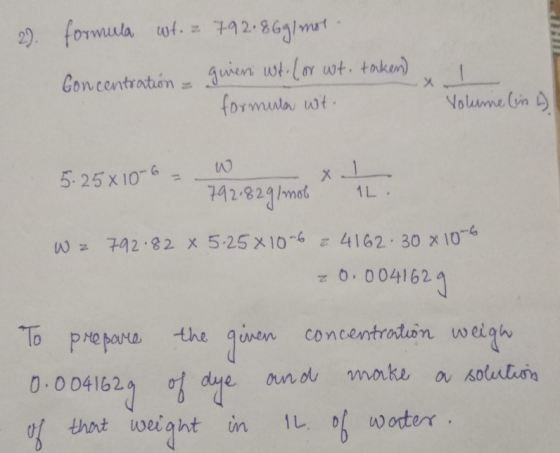 2). formula wt. = 792.86g/mol.
Concentration = given wt. (or wt. taken) / formula wt. × 1 / Volume (in L).
5.25×10⁻⁶ = W / 792.82g/mol × 1 / 1L.
W = 792.82 × 5.25×10⁻⁶ = 4162.30 ×10⁻⁶
= 0.004162g
To prepare the given concentration weigh
0.004162g of dye and make a solution
of that weight in 1L. of water.